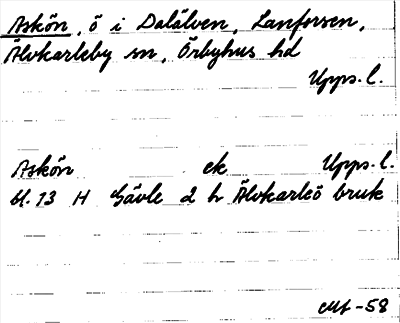 Askön, ö i Dalälven, Lanforsen,
Älvkarleby sn, Örbyhus hd
Upps. l.
Askön ek Upps. l.
bl. 13 H Gävle 2 h Älvkarleö bruk
Mf -58